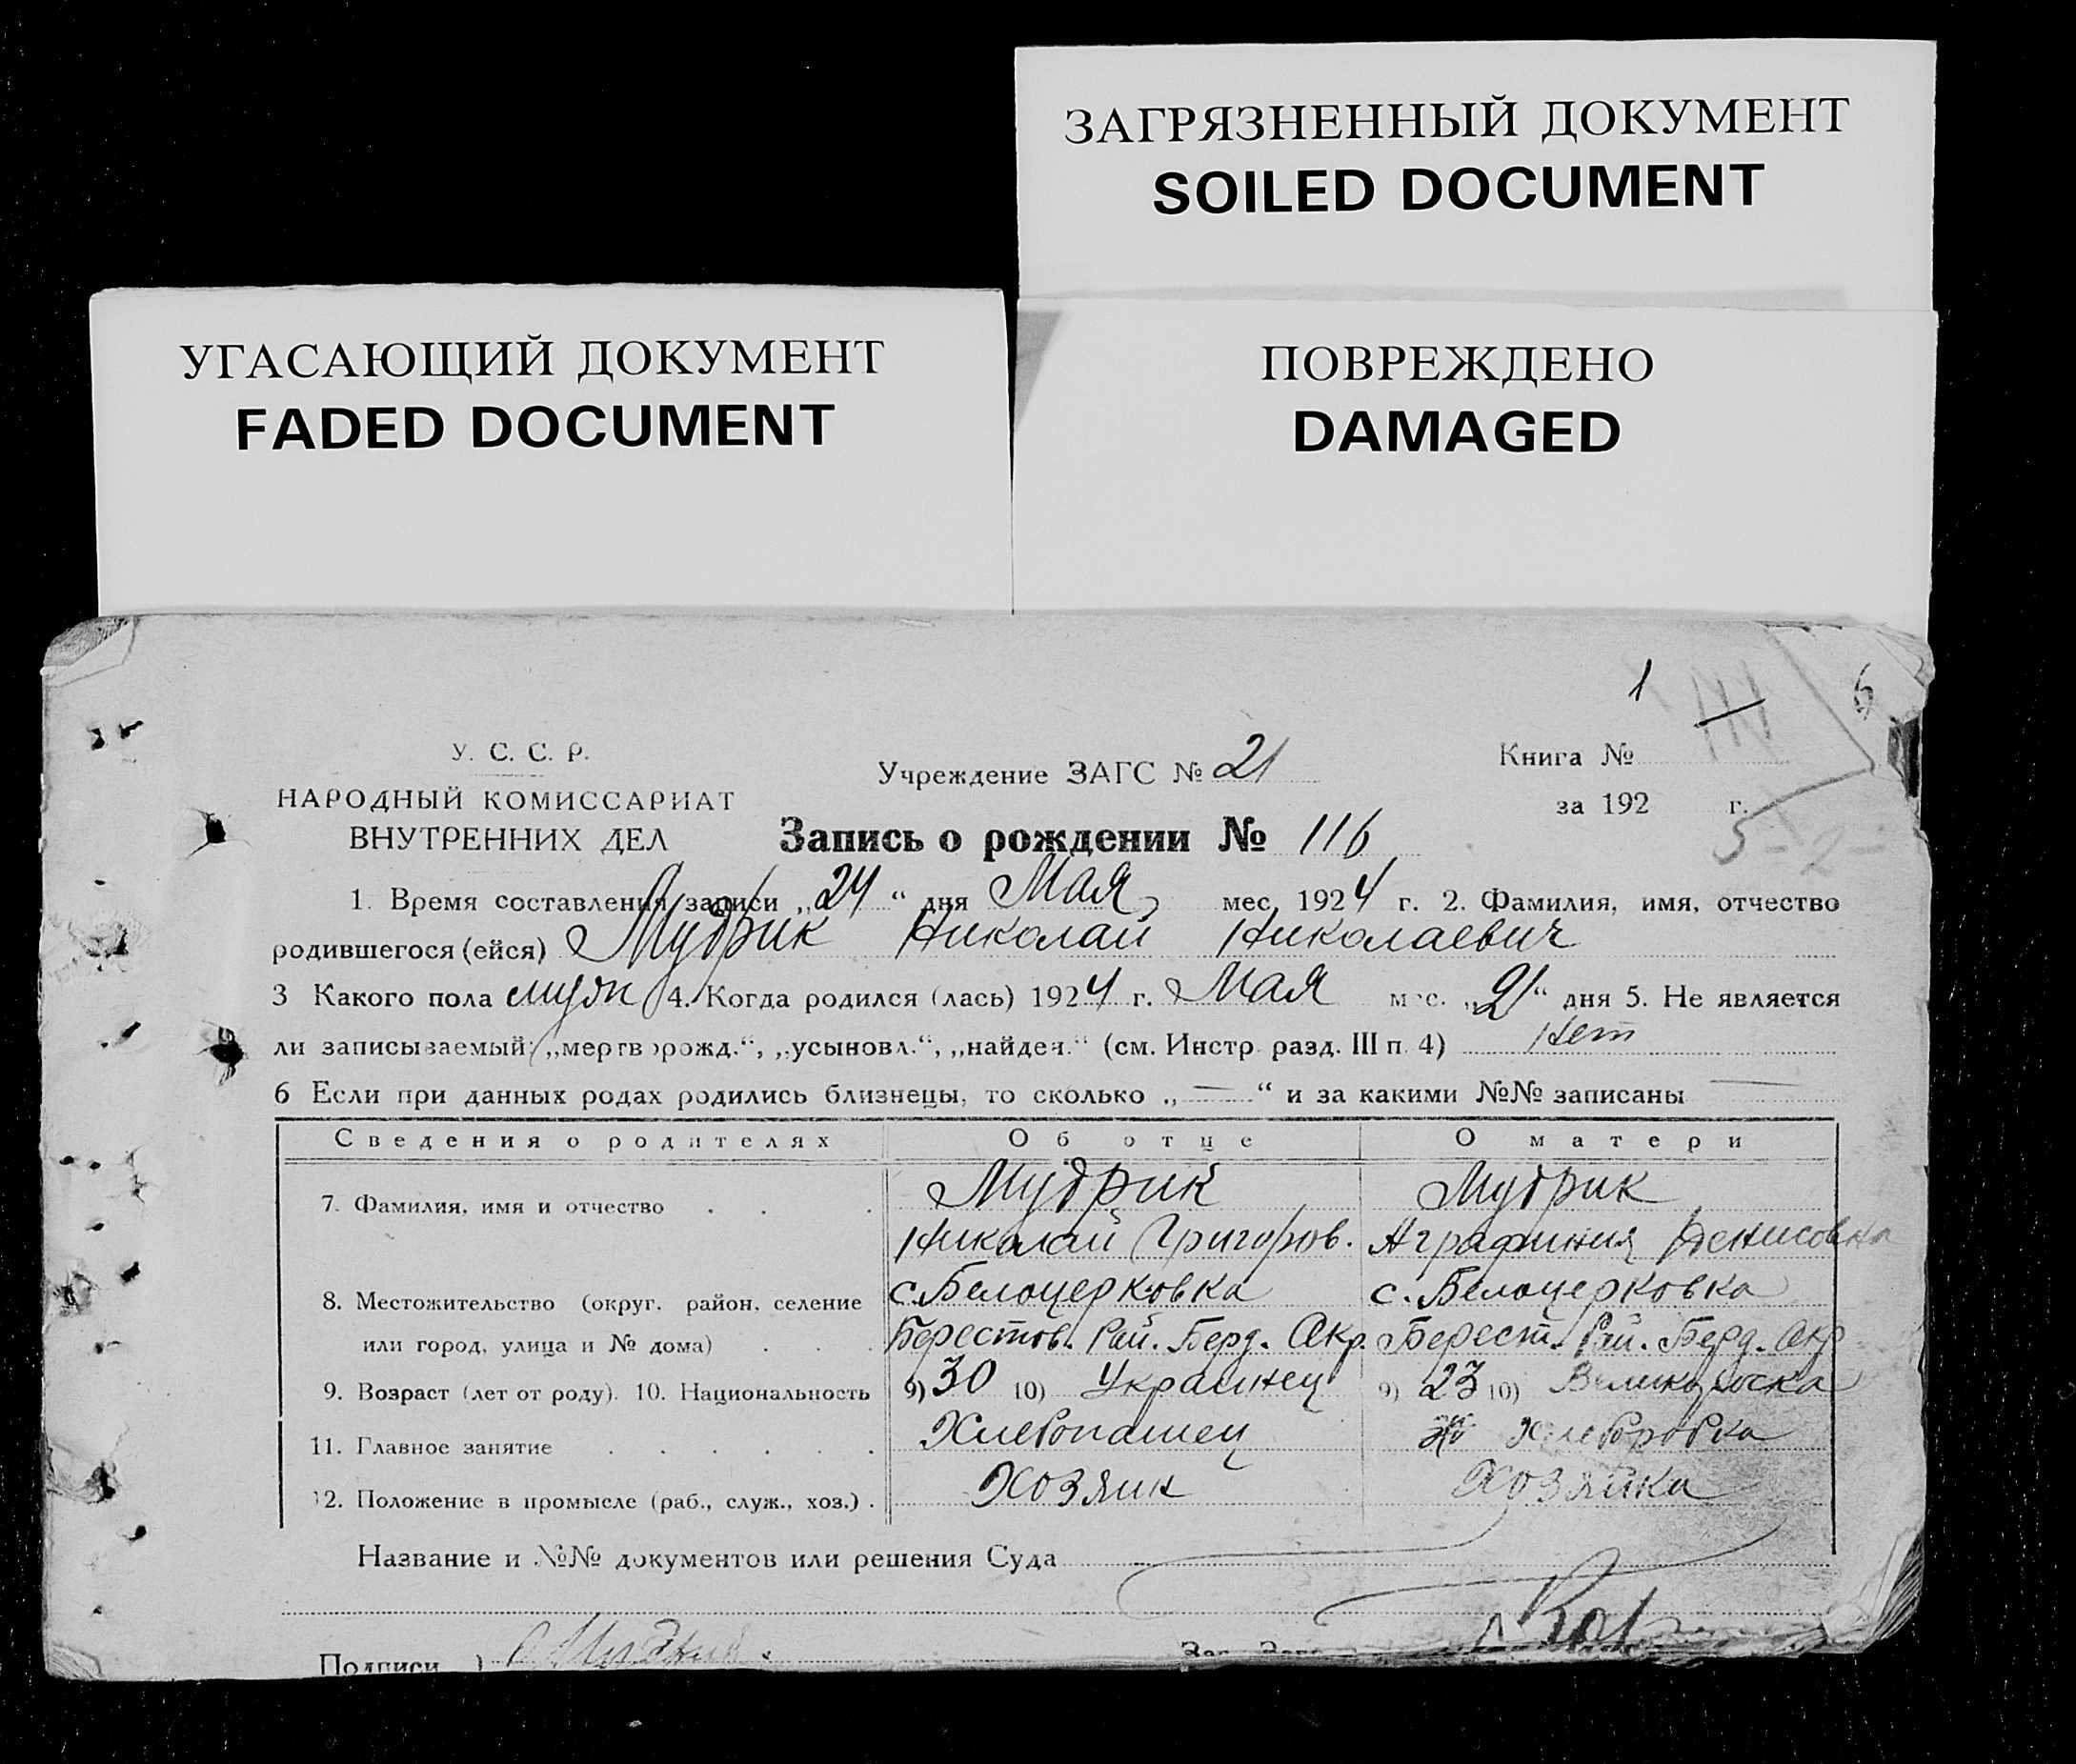 ЗАГРЯЗНЕННЫЙ ДОКУМЕНТ
SOILED DOCUMENT
УГАСАЮЩИЙ ДОКУМЕНТ
FADED DOCUMENT
ПОВРЕЖДЕНО
DAMAGED
1
6
У. С. С. Р.
НАРОДНЫЙ КОМИССАРИАТ
ВНУТРЕННИХ ДЕЛ
Учреждение ЗАГС № 21
Книга №
за 192 г.
Запись о рождении № 116
5-2-
1. Время составления записи „24“ дня Мая мес. 1924 г. 2. Фамилия, имя, отчество
родившегося (ейся) Мудрик Николай Николаевич
3 Какого пола муж 4. Когда родился (лась) 1924 г. Мая мес. „21“ дня 5. Не является
ли записываемый: „мертворожд.“, „усыновл.“, „найден.“ (см. Инстр. разд. III п. 4) Нет
6 Если при данных родах родились близнецы, то сколько „—“ и за какими №№ записаны —
Сведения о родителях Об отце О матери
7. Фамилия, имя и отчество Мудрик Мудрик
Николай Григоров. Аграфиния Денисовна
8. Местожительство (округ. район, селение с. Белоцерковка с. Белоцерковка
или город, улица и № дома) Берестов. Рай. Берд. Окр. Берест. Рай. Берд. Окр
9. Возраст (лет от роду). 10. Национальность 9) 30 10) Украинец 9) 23 10) Великороска
11. Главное занятие Хлебопашец Хлеборобка
12. Положение в промысле (раб., служ., хоз.) Хозяин Хозяйка
Название и №№ документов или решения Суда
Подписи